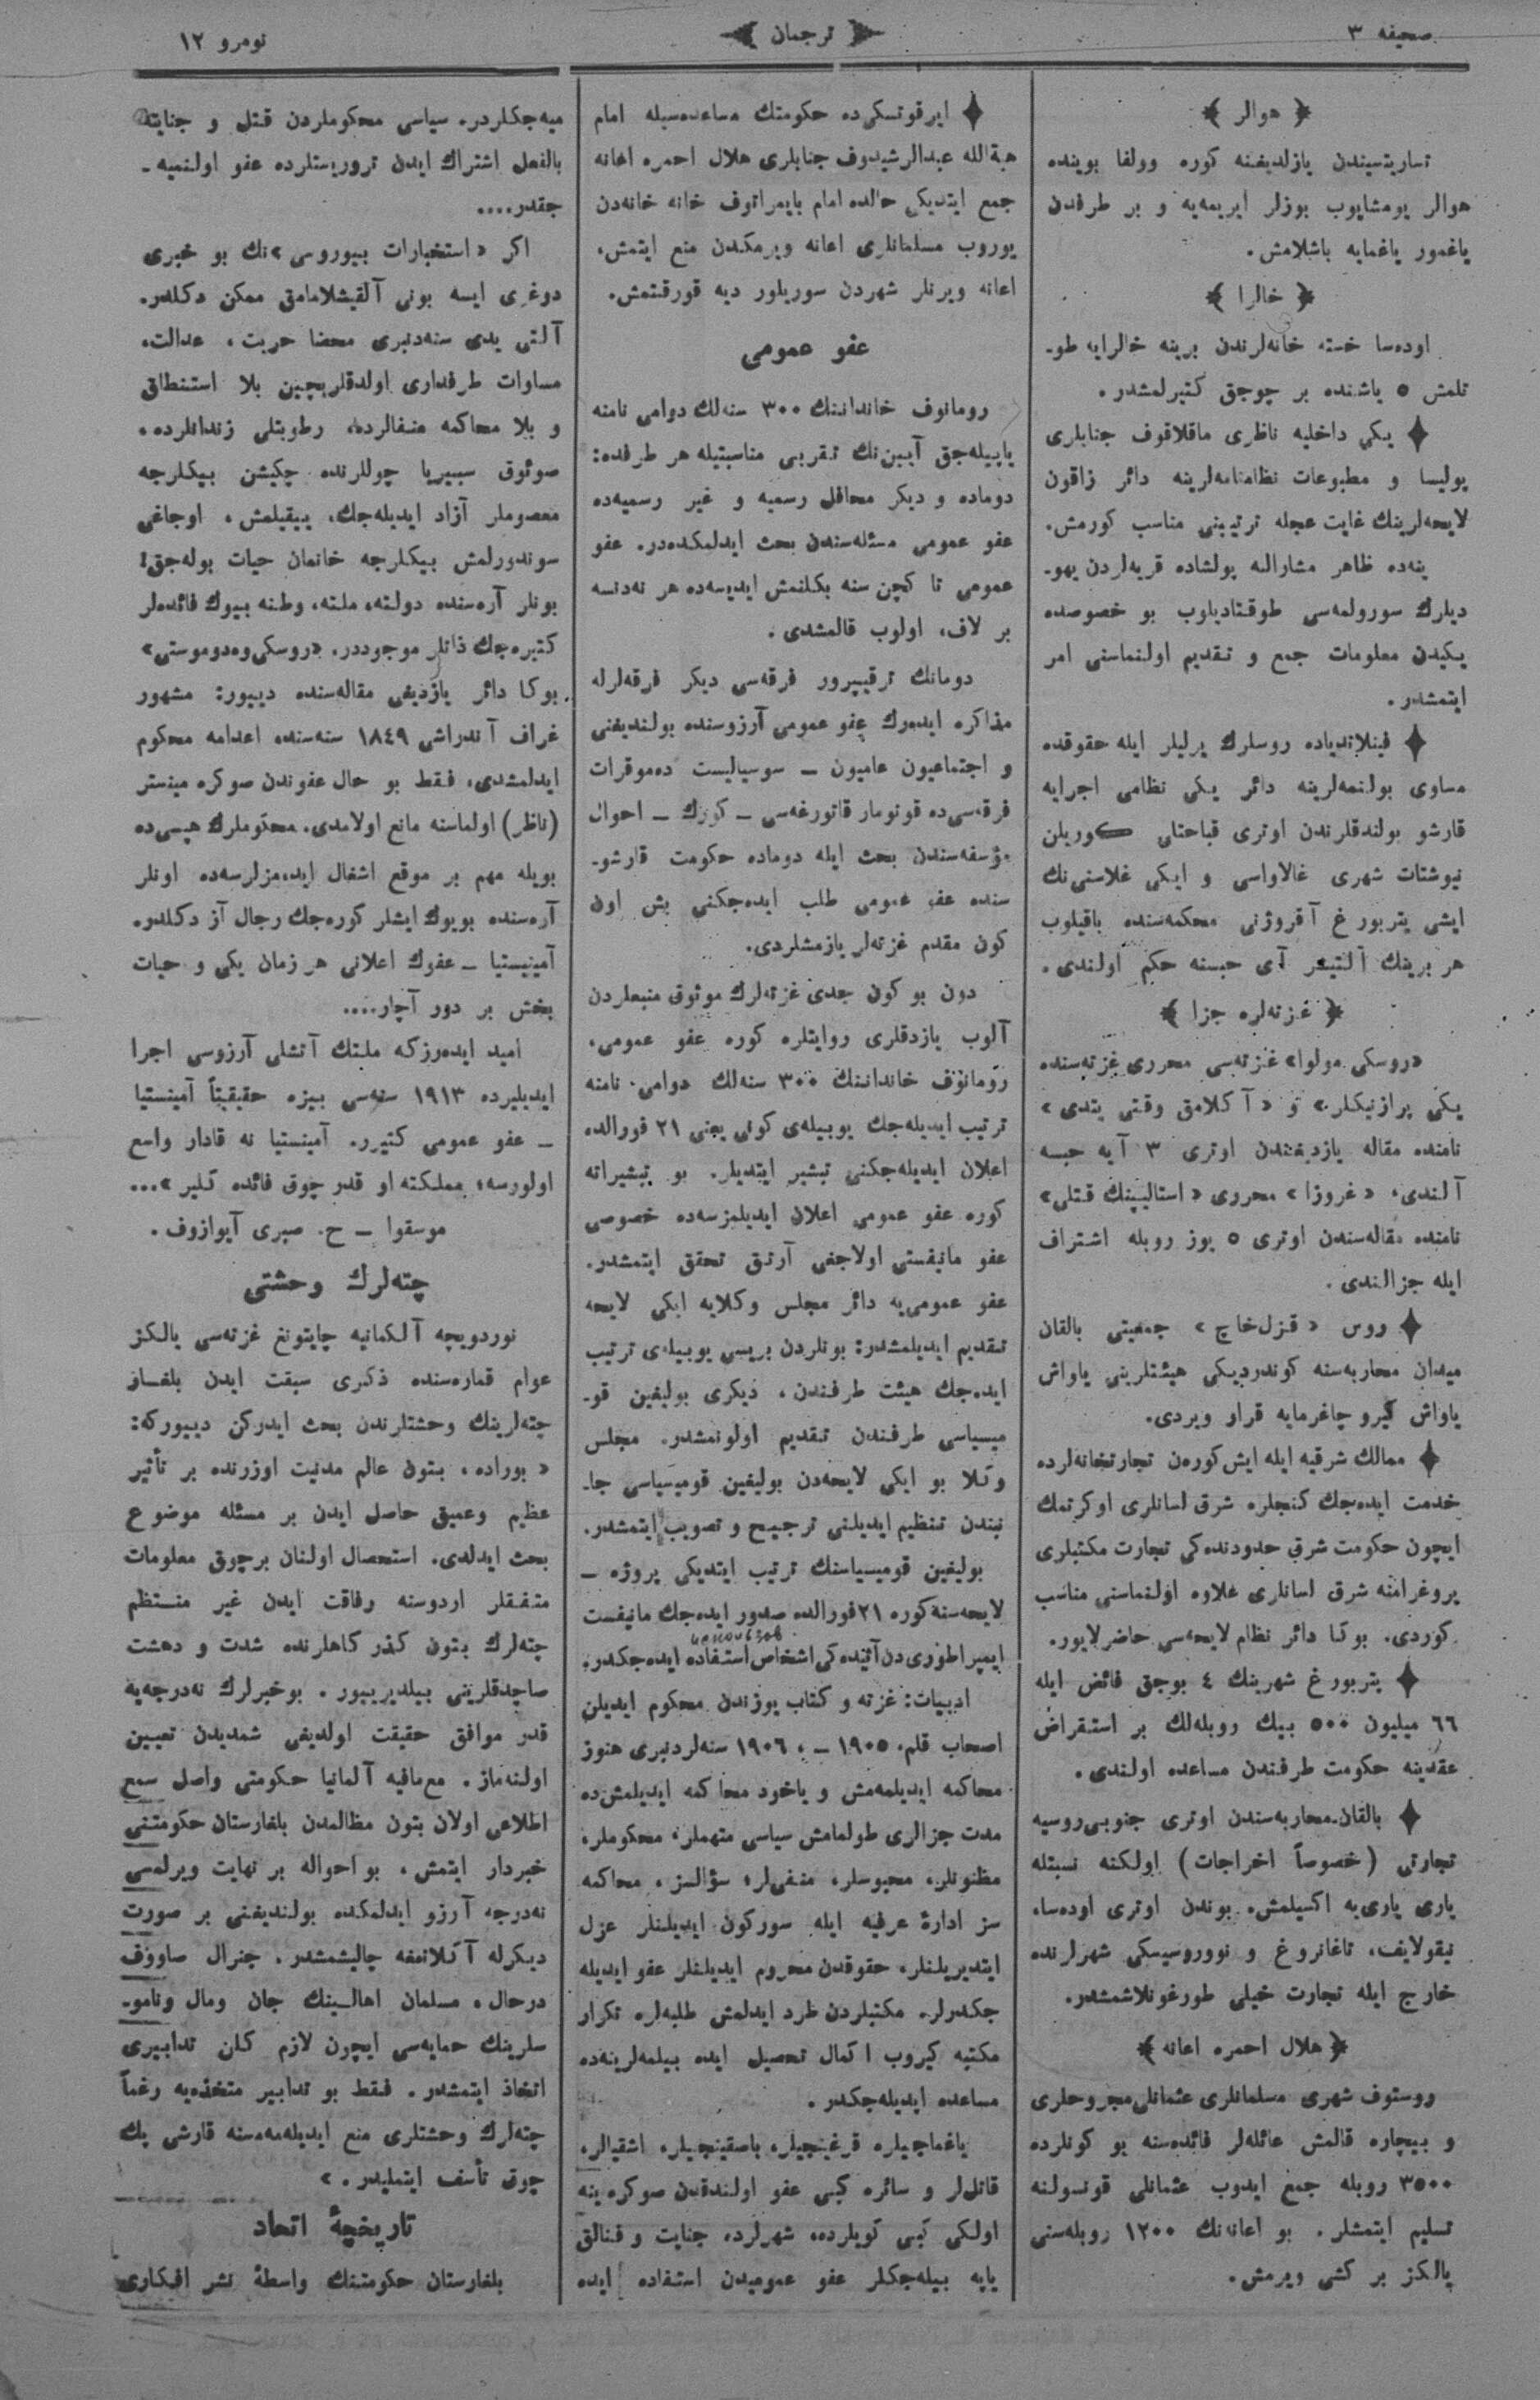 صحیفه ٣
ترجمان
نومرو ١٢
﴿ هوالر ﴾
تساریتسیندن یازلدیغنه کوره وولفا بوینده
هوالر یومشایوب بوزلر ایریمه‌یه و بر طرفدن
یاغمور یاغمایه باشلامش.
﴿ خالرا ﴾
اوده‌سا خسته خانه‌لرندن برینه خالرایه طو-
تلمش ٥ یاشنده بر چوجق کتیرلمشدر.
یکی داخلیه ناظری ماقلاقوف جنابلری
پولیسا و مطبوعات نظامنامه‌لرینه دائر زاقون
لایحه‌لرینك غایت عجله ترتیبنی مناسب کورمش.
ینه‌ده ظاهر مشارالیه پولشاده قریه‌لردن یهو-
دیلرك سورولمه‌سی طوقتادیلوب بو خصوصده
یکیدن معلومات جمع و تقدیم اولنماسنی امر
ایتمشدر.
فینلاندیاده روسلرك یرلیلر ایله حقوقده
مساوی بولنمه‌لرینه دائر یکی نظامی اجرایه
قارشو بولندقلرندن اوتری قباحتلی کوریلن
نیوشتات شهری غالاواسی و ایکی غلاسنی‌نك
ایشی پتربورغ آقروژنی محکمه‌سنده باقیلوب
هر برینك آلتیشر آی حبسنه حکم اولندی.
﴿ غزته‌لره جزا ﴾
«روسکی مولوا» غزته‌سی محرری غزته‌سنده
یکی پرازنیکلر» و «آکلامق وقتی یتدی»
نامنده مقاله یازدیغندن اوتری ٣ آیه حبسه
آلندی، «غروزا» محرری «استالیپینك قتلی»
نامنده مقاله‌سندن اوتری ٥ یوز روبله اشتراف
ایله جزالندی.
روس «قزل‌خاچ» جمعیتی بالقان
میدان محاربه‌سنه کوندردیکی هیئتلرینی یاواش
یاواش کیرو چاغرمایه قرار ویردی.
ممالك شرقیه ایله ایش کورن تجارتخانه‌لرده
خدمت ایده‌جك کنجلره شرق لسانلری اوکرتمك
ایچون حکومت شرق حدودنده‌کی تجارت مکتبلری
پروغرامنه شرق لسانلری علاوه اولنماسنی مناسب
کوردی. بوکا دائر نظام لایحه‌سی حاضرلایور.
پتربورغ شهرینك ٤ بوچق فائض ایله
٦٦ میلیون ٥٠٠ بیك روبله‌لك بر استقراض
عقدینه حکومت طرفندن مساعده اولندی.
بالقان محاربه‌سندن اوتری جنوبی روسیه
تجارتی (خصوصاً اخراجات) اولکنه نسبتله
یاری یاری‌یه اکسیلمش. بوندن اوتری اوده‌سا،
نیقولایف، تاغانروغ و نووروسیسکی شهرلرنده
خارج ایله تجارت خیلی طورغونلاشمشدر.
﴿هلال احمره اعانه﴾
روستوف شهری مسلمانلری عثمانلی مجروحلری
و بیچاره قالمش عائله‌لر فائده‌سنه بو کونلرده
٣٥٠٠ روبله جمع ایدوب عثمانلی قونسولنه
تسلیم ایتمشلر. بو اعانه‌نك ١٢٠٠ روبله‌سنی
یالکز بر کشی ویرمش.
ایرقوتسکی‌ده حکومتك مساعده‌سیله امام
هبةالله عبدالرشیدوف جنابلری هلال احمره اعانه
جمع ایتدیکی حالده امام بایمراتوف خانه خانه‌دن
یوروب مسلمانلری اعانه ویرمکدن منع ایتمش،
اعانه ویرنلر شهردن سوریلور دیه قورقتمش.
عفو عمومی
رومانوف خانداننك ٣٠٠ سنه‌لك دوامی نامنه
یاپیله‌جق آیین‌نك تقربی مناسبتیله هر طرفده:
دوماده و دیکر محافل رسمیه و غیر رسمیه‌ده
عفو عمومی مسئله‌سندن بحث ایدلمکده‌در. عفو
عمومی تا کچن سنه بکلنمش ایدیسه‌ده هر نه‌دنسه
بر لاف، اولوب قالمشدی.
دومانك ترقیپرور فرقه‌سی دیکر فرقه‌لرله
مذاکره ایده‌رك عفو عمومی آرزوسنده بولندیغنی
و اجتماعیون عامیون – سوسیالیست ده‌موقرات
فرقه‌سی‌ده قونومار قاتورغه‌سی – کورك – احوال
مؤسفه‌سندن بحث ایله دوماده حکومت قارشو-
سنده عفو عمومی طلب ایده‌جکنی بش اون
کون مقدم غزته‌لر یازمشلردی.
دون بو کون جدی غزته‌لرك موثوق منبعلردن
آلوب یازدقلری روایتلره کوره عفو عمومی،
رومانوف خانداننك ٣٠٠ سنه‌لك دوامی نامنه
ترتیب ایدیله‌جك یوبیله‌ی کونی یعنی ٢١ فورالده
اعلان ایدیله‌جکنی تبشیر ایتدیلر. بو تبشیراته
کوره عفو عمومی اعلان ایدیلمزسه‌ده خصوصی
عفو مانیفستی اولاجغی آرتق تحقق ایتمشدر.
عفو عمومی‌یه دائر مجلس وکلایه ایکی لایحه
تقدیم ایدیلمشدر: بونلردن بریسی یوبیله‌ی ترتیب
ایده‌جك هیئت طرفندن، دیکری بولیغین قو-
میسیاسی طرفندن تقدیم اولونمشدر. مجلس
وکلا بو ایکی لایحه‌دن بولیغین قومیسیاسی جا-
نبندن تنظیم ایدیلنی ترجیح و تصویب ایتمشدر.
بولیغین قومیسیاسنك ترتیب ایتدیکی پروژه –
لایحه‌سنه کوره ٢١ فورالده صدور ایده‌جك مانیفست
ایمپراطوری‌دن آتیده‌کی اشخاص استفاده ایده‌جکدر.
ادبیات: غزته و کتاب یوزندن محکوم ایدیلن
اصحاب قلم. ١٩٠٥ – ، ١٩٠٦ سنه‌لردنبری هنوز
محاکمه ایدیلمه‌مش و یاخود محاکمه ایدیلمش‌ده
مدت جزالری طولمامش سیاسی متهملر، محکوملر،
مظنونلر، محبوسلر، منفی‌لر؛ سؤالسز، محاکمه
سز ادارهٔ عرفیه ایله سورکون ایدیلنلر عزل
ایتدیریلنلر، حقوقدن محروم ایدیلنلر عفو ایدیله
جکدرلر. مکتبلردن طرد ایدلمش طلبه‌لره تکرار
مکتبه کیروب اکمال تحصیل ایده بیلمه‌لرینه‌ده
مساعده ایدیله‌جکدر.
یاغماجیلره قرغینچیلر، باصقینچیلر، اشقیالر،
قاتل‌لر و سائره کبی عفو اولندقدن صوکره ینه
اولکی کبی کویلرده، شهرلرده جنایت و فنالق
یاپه بیله‌جکلر عفو عمومیدن استفاده ایده
میه‌جکلردر. سیاسی محکوملردن قتل و جنایته
بالفعل اشتراك ایدن تروریستلرده عفو اولنمیه-
جقدر....
اکر «استخبارات بیوروسی»نك بو خبری
دوغری ایسه بونی آلقیشلامامق ممکن دکلدر.
آلتی یدی سنه‌دنبری محضا حریت، عدالت،
مساوات طرفداری اولدقلریچین بلا استنطاق
و بلا محاکمه منفالرده، رطوبتلی زندانلرده،
صوئوق سیبیریا چوللرنده چکیشن بیکلرجه
معصوملر آزاد ایدیله‌جك، ییقیلمش، اوجاغی
سوندورلمش بیکلرجه خانمان حیات بوله‌جق!
بونلر آره‌سنده دولته، ملته، وطنه بیوك فائده‌لر
کتیره‌جك ذاتلر موجوددر. «روسکی وه‌دوموستی»
بوکا دائر یازدیغی مقاله‌سنده دییور: مشهور
غراف آندراشی ١٨٤٩ سنه‌سنده اعدامه محکوم
ایدلمشدی، فقط بو حال عفوندن صوکره مینستر
(ناظر) اولماسنه مانع اولامدی. محکوملرك هپسی‌ده
بویله مهم بر موقع اشغال ایده‌مزلرسه‌ده اونلر
آره‌سنده بویوك ایشلر کوره‌جك رجال آز دکلدر.
آمینیستیا – عفوك اعلانی هر زمان یکی و حیات
بخش بر دور آچار....
امید ایده‌رزکه ملتك آتشلی آرزوسی اجرا
ایدیلیرده ١٩١٣ سنه‌سی بیزه حقیقیتاً آمینستیا
– عفو عمومی کتیرر. آمینستیا نه قادار واسع
اولورسه؛ مملکته او قدر چوق فائده کلیر»...
موسقوا – ح. صبری آیوازوف.
چته‌لرك وحشتی
نوردویچه آلکمانیه چایتونغ غزته‌سی یالکز
عوام قماره‌سنده ذکری سبقت ایدن بلغار
چته‌لرینك وحشتلرندن بحث ایدرکن دییورکه:
«بوراده، بتون عالم مدنیت اوزرنده بر تأثیر
عظیم وعمیق حاصل ایدن بر مسئله موضوع
بحث ایدلدی. استحصال اولنان برچوق معلومات
متفقلر اردوسنه رفاقت ایدن غیر منتظم
چته‌لرك بتون کذرکاهلرنده شدت و دهشت
صاچدقلرینی بیلدیرییور. بوخبرلرك نه‌درجه‌یه
قدر موافق حقیقت اولدیغی شمدیدن تعیین
اولنه‌ماز. مع‌مافیه آلمانیا حکومتی واصل سمع
اطلاعی اولان بتون مظالمدن بلغارستان حکومتنی
خبردار ایتمش، بو احواله بر نهایت ویرلمسی
نه‌درجه آرزو ایدلمکده بولندیغنی بر صورت
دیکرله آکلاتمغه چالیشمشدر. جنرال صاووف
درحال، مسلمان اهالینك جان ومال ونامو-
سلرینك حمایه‌سی ایچون لازم کلن تدابیری
اتخاذ ایتمشدر. فقط بو تدابیر متخذه‌یه رغماً
چته‌لرك وحشتلری منع ایدیله‌مه‌مسنه قارشی پك
چوق تأسف ایتملیدر.»
تاریخچهٔ اتحاد
بلغارستان حکومتنك واسطهٔ نشر افکاری